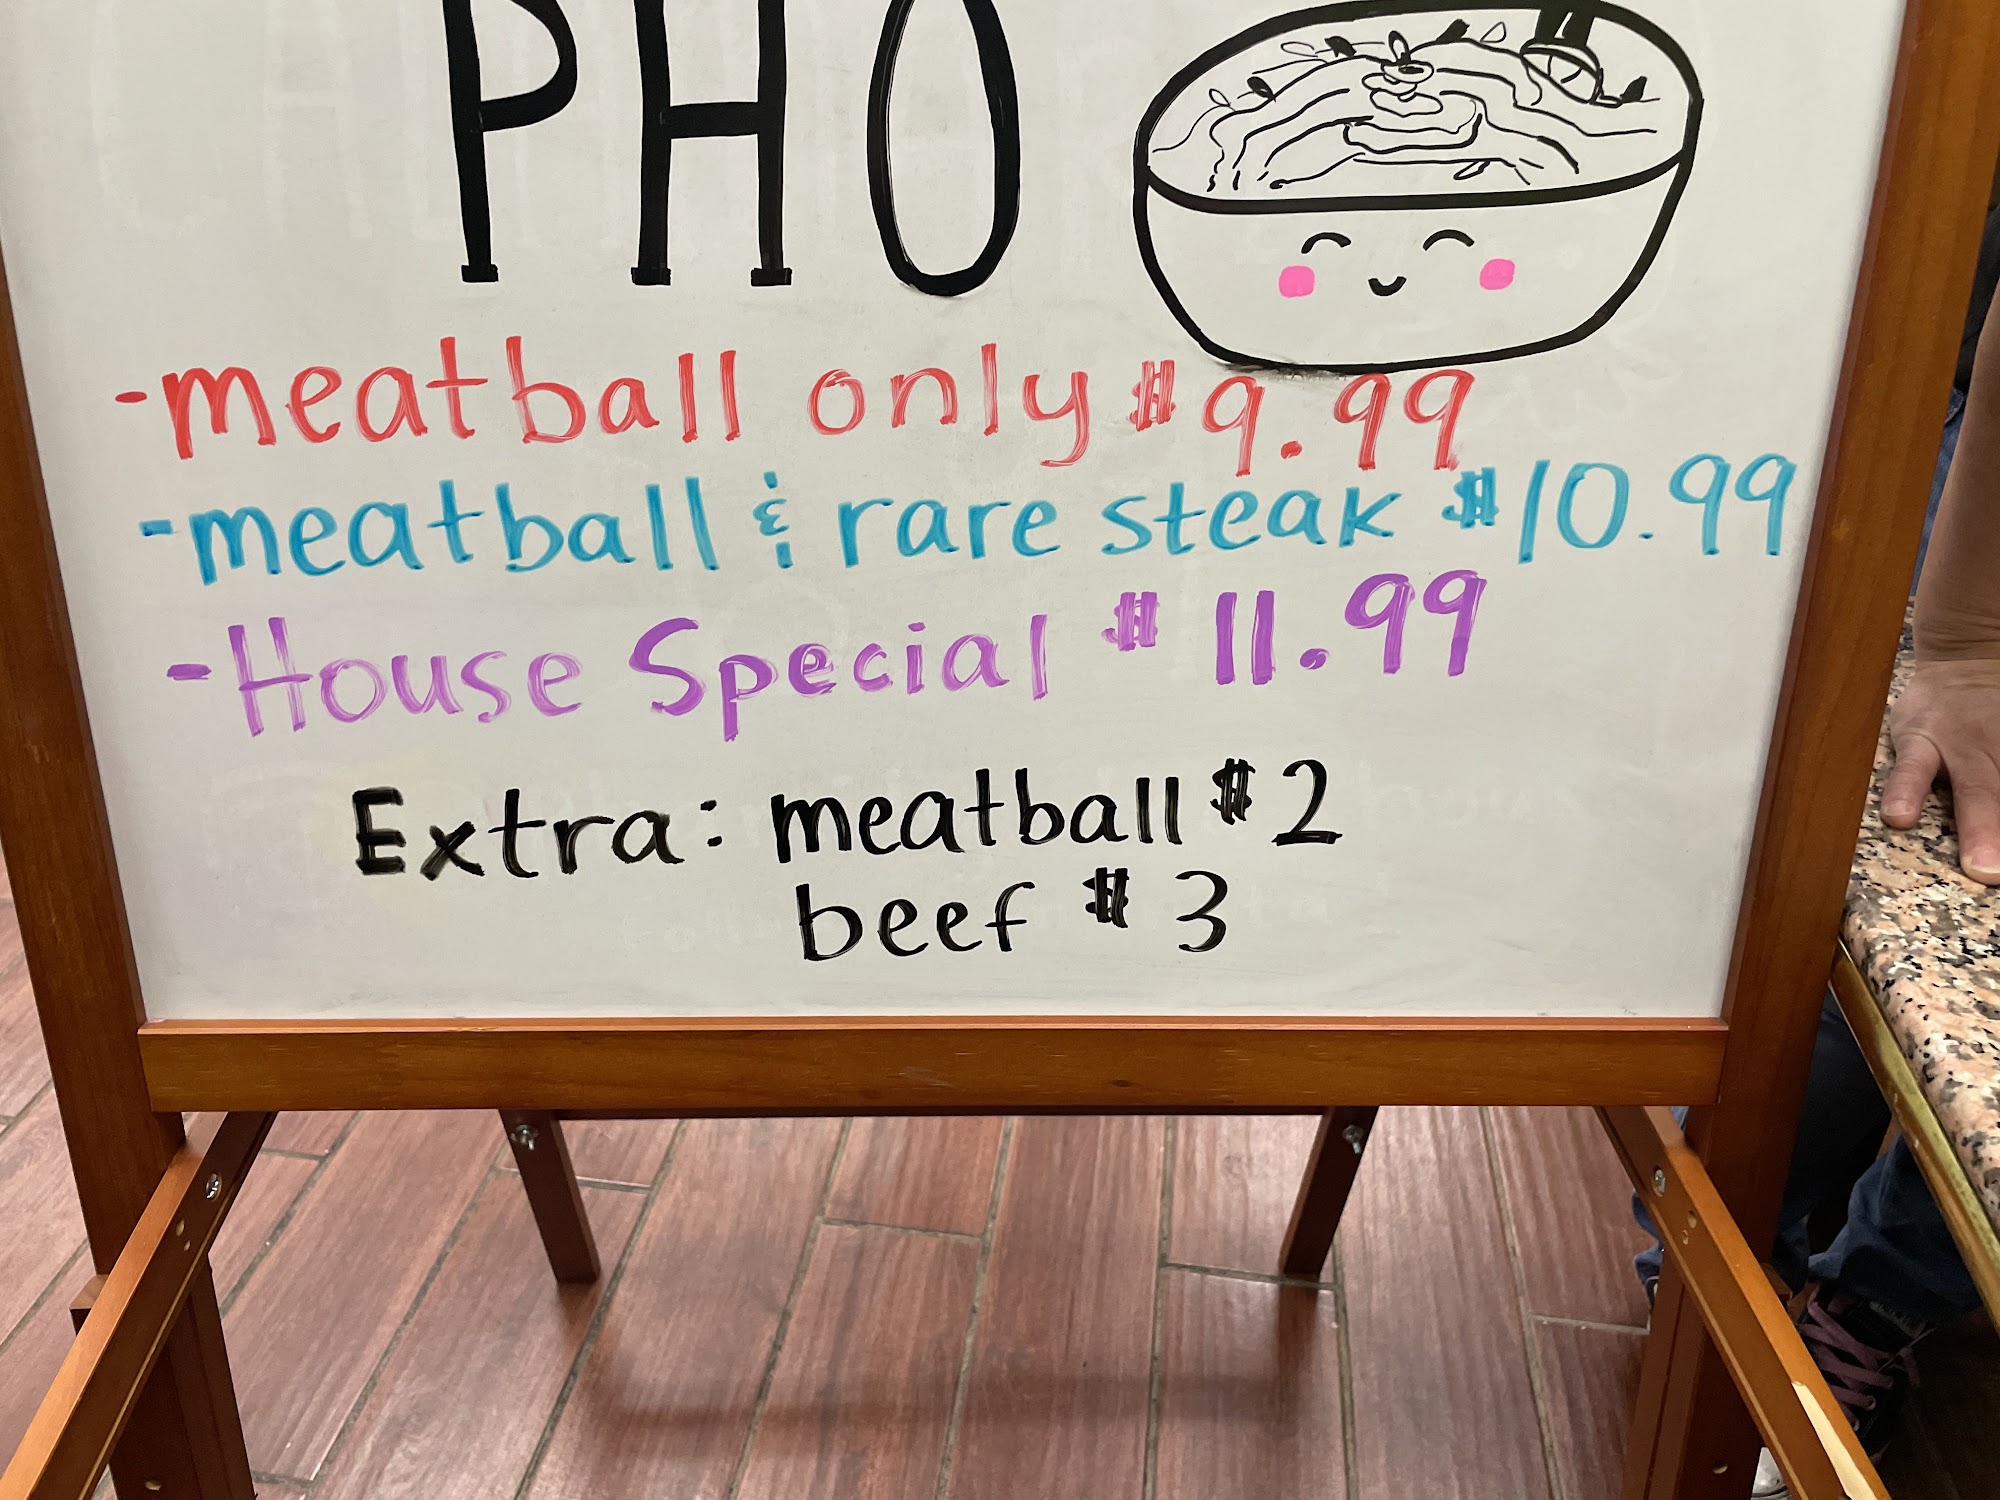 PHO
-meatball only $9.99
-meatball & rare steak $10.99
-House Special $11.99
Extra: meatball $2
beef $3